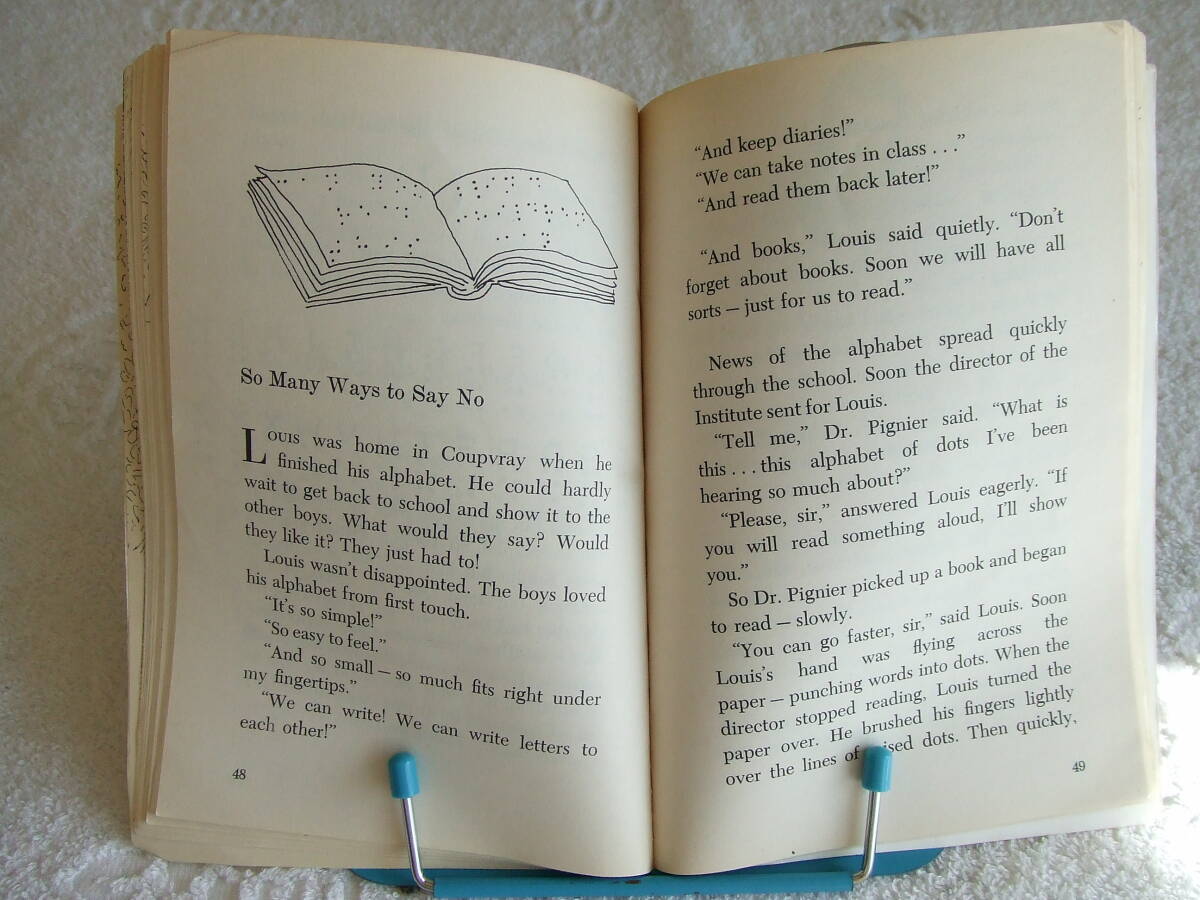 So Many Ways to Say No
Louis was home in Coupvray when he
finished his alphabet. He could hardly
wait to get back to school and show it to the
other boys. What would they say? Would
they like it? They just had to!
Louis wasn't disappointed. The boys loved
his alphabet from first touch.
"It's so simple!"
"So easy to feel."
"And so small — so much fits right under
my fingertips."
"We can write! We can write letters to
each other!"
48
"And keep diaries!"
"We can take notes in class . . ."
"And read them back later!"
"And books," Louis said quietly. "Don't
forget about books. Soon we will have all
sorts — just for us to read."
News of the alphabet spread quickly
through the school. Soon the director of the
Institute sent for Louis.
"Tell me," Dr. Pignier said. "What is
this . . . this alphabet of dots I've been
hearing so much about?"
"Please, sir," answered Louis eagerly. "If
you will read something aloud, I'll show
you."
So Dr. Pignier picked up a book and began
to read — slowly.
"You can go faster, sir," said Louis. Soon
Louis's hand was flying across the
paper — punching words into dots. When the
director stopped reading, Louis turned the
paper over. He brushed his fingers lightly
over the lines of dots. Then quickly,
49